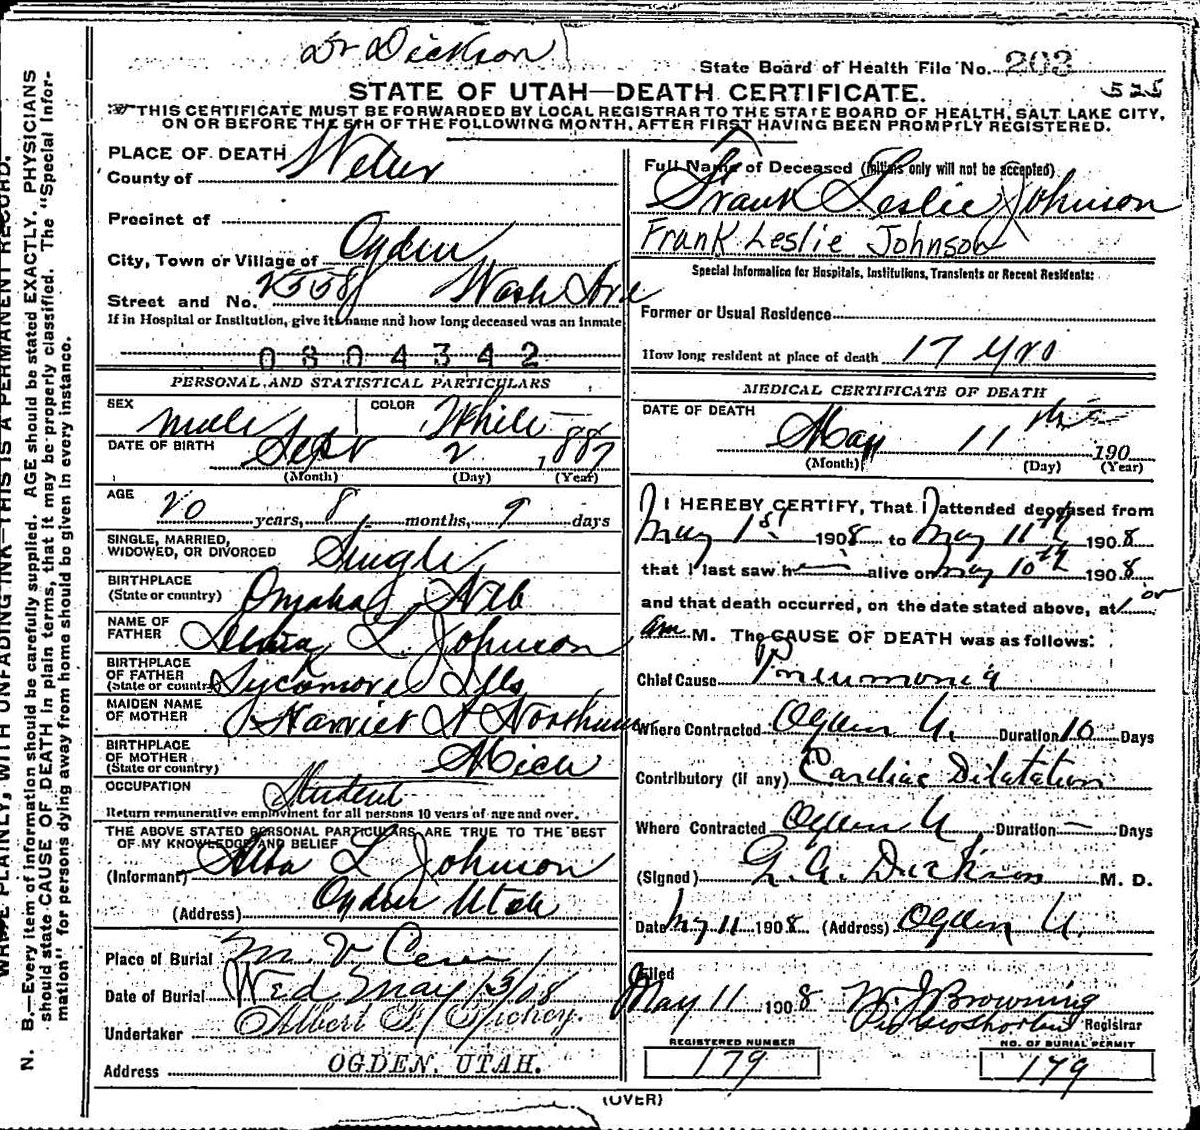 Dr Dickson
State Board of Health File No. 203
525
STATE OF UTAH—DEATH CERTIFICATE.
THIS CERTIFICATE MUST BE FORWARDED BY LOCAL REGISTRAR TO THE STATE BOARD OF HEALTH, SALT LAKE CITY,
ON OR BEFORE THE 5TH OF THE FOLLOWING MONTH, AFTER FIRST HAVING BEEN PROMPTLY REGISTERED.
WRITE PLAINLY, WITH UNFADING INK—THIS IS A PERMANENT RECORD.
N. B.—Every item of information should be carefully supplied. AGE should be stated EXACTLY. PHYSICIANS
should state CAUSE OF DEATH in plain terms, that it may be properly classified. The "Special Infor-
mation" for persons dying away from home should be given in every instance.
PLACE OF DEATH
County of Weber
Precinct of
City, Town or Village of Ogden
Street and No. 2558 Wash Ave
If in Hospital or Institution, give its name and how long deceased was an inmate
0804342
PERSONAL AND STATISTICAL PARTICULARS
SEX male COLOR White
DATE OF BIRTH Sept 2 1887
(Month) (Day) (Year)
AGE 20 years, 8 months, 9 days
SINGLE, MARRIED,
WIDOWED, OR DIVORCED Single
BIRTHPLACE
(State or country) Omaha Neb
NAME OF
FATHER L. Johnson
BIRTHPLACE
OF FATHER
(State or country) Sycamore Ills
MAIDEN NAME
OF MOTHER Harriet
BIRTHPLACE
OF MOTHER
(State or country) Mich
OCCUPATION Student
Return remunerative employment for all persons 10 years of age and over.
THE ABOVE STATED PERSONAL PARTICULARS ARE TRUE TO THE BEST
OF MY KNOWLEDGE AND BELIEF
(Informant) L Johnson
(Address) Ogden Utah
Place of Burial M. V. Cem
Date of Burial Wed May 13/08
Undertaker Albert F. Richey.
Address OGDEN, UTAH.
Full Name of Deceased (Initials only will not be accepted)
Frank Leslie Johnson
Frank Leslie Johnson
Special Information for Hospitals, Institutions, Transients or Recent Residents:
Former or Usual Residence
How long resident at place of death 17 yrs
MEDICAL CERTIFICATE OF DEATH
DATE OF DEATH
May 11 190
(Month) (Day) (Year)
I HEREBY CERTIFY, That I attended deceased from
May 1st 1908 to May 11th 1908
that I last saw h alive on May 10th 1908
and that death occurred, on the date stated above, at 1 00
am M. The CAUSE OF DEATH was as follows:
Chief Cause Pneumonia
Where Contracted Ogden U. Duration 10 Days
Contributory (if any) Cardiac Dilatation
Where Contracted Ogden U Duration — Days
(Signed) G. A. Dickson M. D.
Date My 11 1908 (Address) Ogden U.
Filed
May 11 1908 W J Browning
Registrar
REGISTERED NUMBER
179
NO. OF BURIAL PERMIT
179
(OVER)